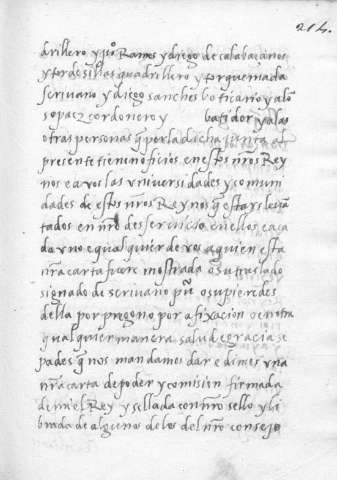 214.
drillero y juº Ramos y diego de calabaçanos
y tordesillas quadrillero y torquemada
scrivano y diego sanches boticario y alº
lopaez cordonero y batidor y a las
otras personas q por la dicha junta el
presente tienen oficios en estos nros Rey
nos e a vos las universidades y comuni
dades de estos nros Reynos q estays levan
tados en nro desservicio en ellos e a ca
do vno e qualquier de vos a quien esta
nra carta fuere mostrada o su traslado
signado de scrivano puº o supieredes
della por pregon o por afixacion o en otra
qualquier manera salud e gracia se
pades q nos mandamos dar e dimos vna
nra carta de poder y comision firmada
de mi el Rey y sellada con nro sello y li
brada de algunos de los del nro consejo